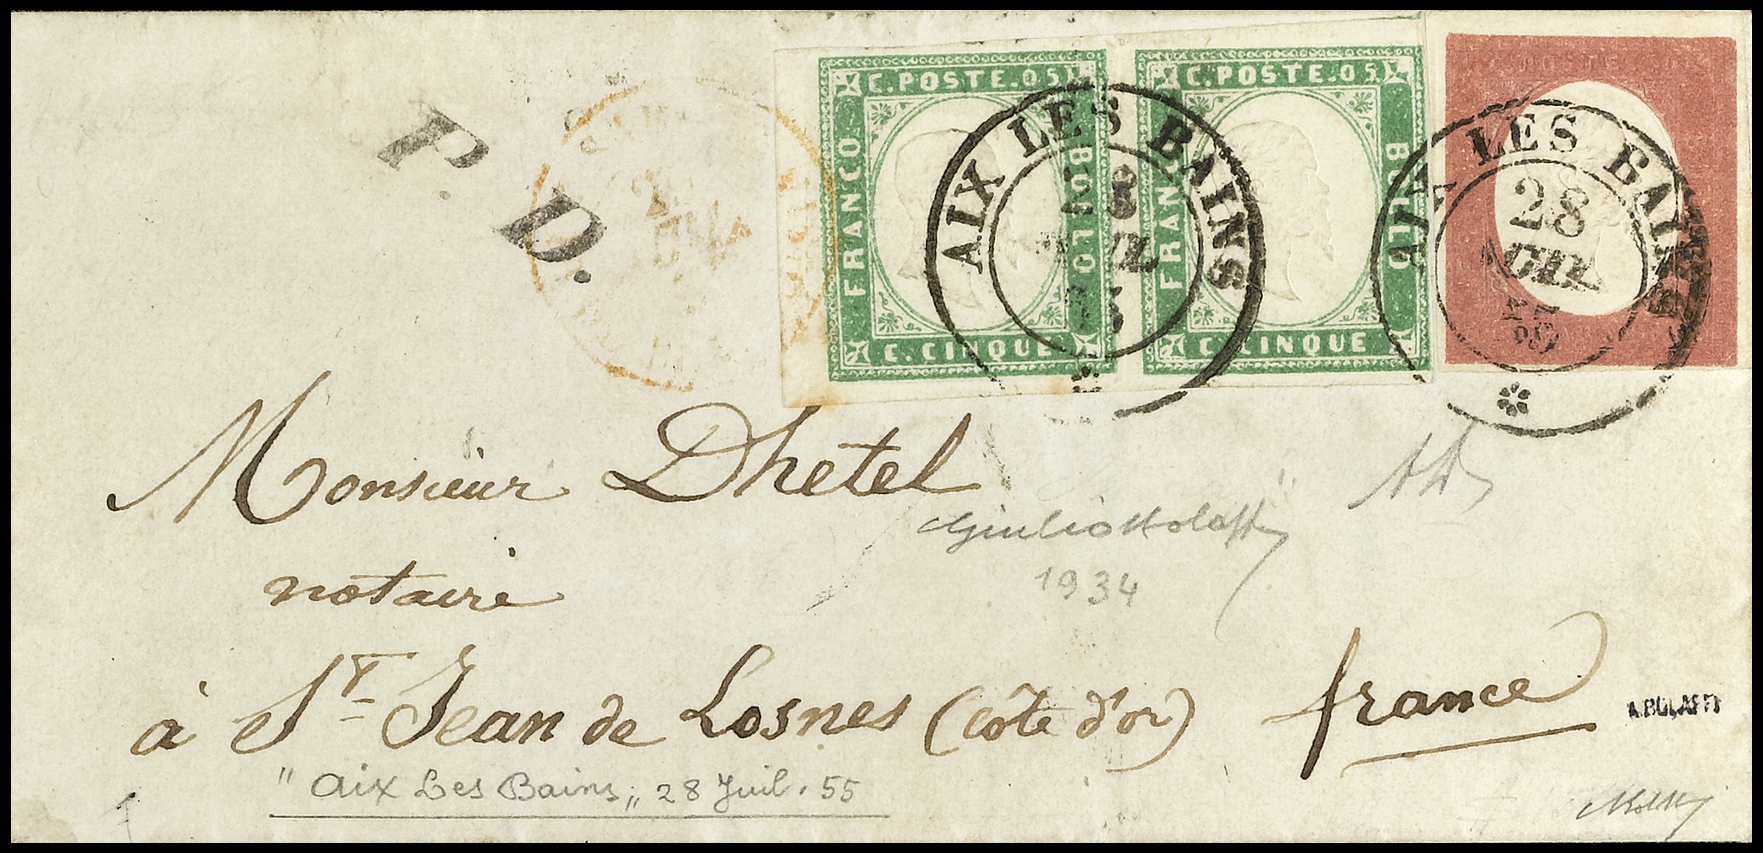 P. D.
C. POSTE. 05
FRANCO
BOLLO
C. CINQUE
C. POSTE. 05
FRANCO
BOLLO
C. CINQUE
C. POSTE
AIX LES BAINS
28
JUIL
55
AIX LES BAINS
28
JUIL
55
Monsieur Dhetel
notaire
à St Jean de Losnes (côte d'or) france
Giulio Bolaffi
1934
A. BOLAFFI
"Aix Les Bains" 28 Juil. 55